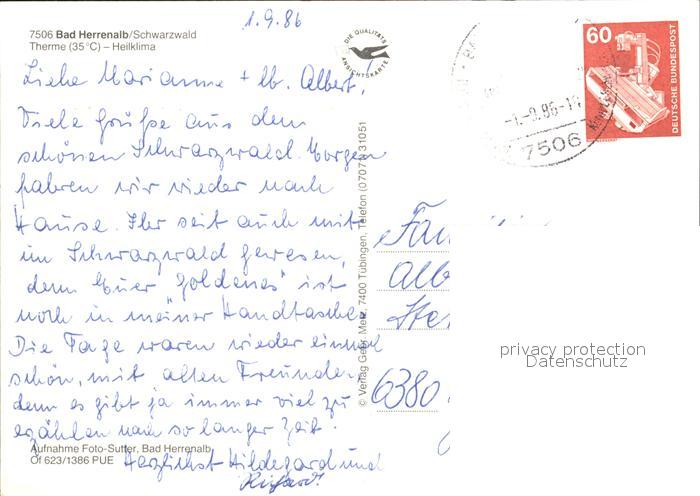 1.9.86
7506 Bad Herrenalb/Schwarzwald
Therme (35°C) – Heilklima
DIE QUALITÄTS
ANSICHTSKARTE
60
DEUTSCHE BUNDESPOST
-1.-9.86-1
7506
Liebe Marianne + lb. Albert,
Viele Grüße aus dem
schönen Schwarzwald. Morgen
fahren wir wieder nach
Hause. Ihr seit auch mit
im Schwarzwald gewesen,
denn Euer "goldenes" ist
noch in meiner Handtasche.
Die Tage waren wieder einmal
schön, mit alten Freunden
denn es gibt ja immer viel zu
erzählen nach so langer Zeit.
Herzlichst Hildegard und
© Verlag Gebr. Metz, 7400 Tübingen, Telefon (07071) 31051
Fam
Alb
6380
privacy protection
Datenschutz
Aufnahme Foto-Sutter, Bad Herrenalb
Of 623/1386 PUE